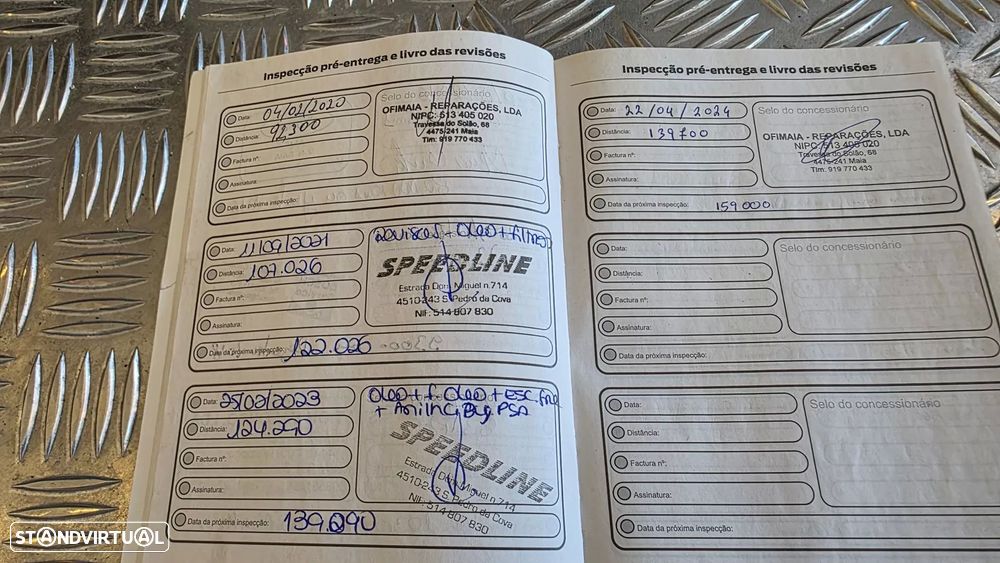 Inspecção pré-entrega e livro das revisões
Data: 04/02/2020
Distância: 92300
Factura nº:
Assinatura:
Data da próxima inspecção:
Selo do concessionário
OFIMAIA - REPARAÇÕES, LDA
NIPC: 513 405 020
Travessa do Solão, 68
4475-241 Maia
Tlm: 919 770 433
Data: 11/09/2021
Distância: 107.026
Factura nº:
Assinatura:
Data da próxima inspecção: 122.026
Revisão + Oleo + filtro
SPEEDLINE
Estrada Dom Miguel n.714
4510-243 S. Pedro da Cova
NIF: 514 807 830
Data: 25/02/2023
Distância: 124.290
Factura nº:
Assinatura:
Data da próxima inspecção: 139.290
Oleo + f. Oleo + esc.
+
SPEEDLINE
Estrada Dom Miguel n.714
4510-243 S. Pedro da Cova
NIF: 514 807 830
Inspecção pré-entrega e livro das revisões
Data: 22/04/2024
Distância: 139700
Factura nº:
Assinatura:
Data da próxima inspecção: 159.000
Selo do concessionário
OFIMAIA - REPARAÇÕES, LDA
NIPC: 513 405 020
Travessa do Solão, 68
4475-241 Maia
Tlm: 919 770 433
Data:
Distância:
Factura nº:
Assinatura:
Data da próxima inspecção:
Selo do concessionário
Data:
Distância:
Factura nº:
Assinatura:
Data da próxima inspecção:
Selo do concessionário
STANDVIRTUAL